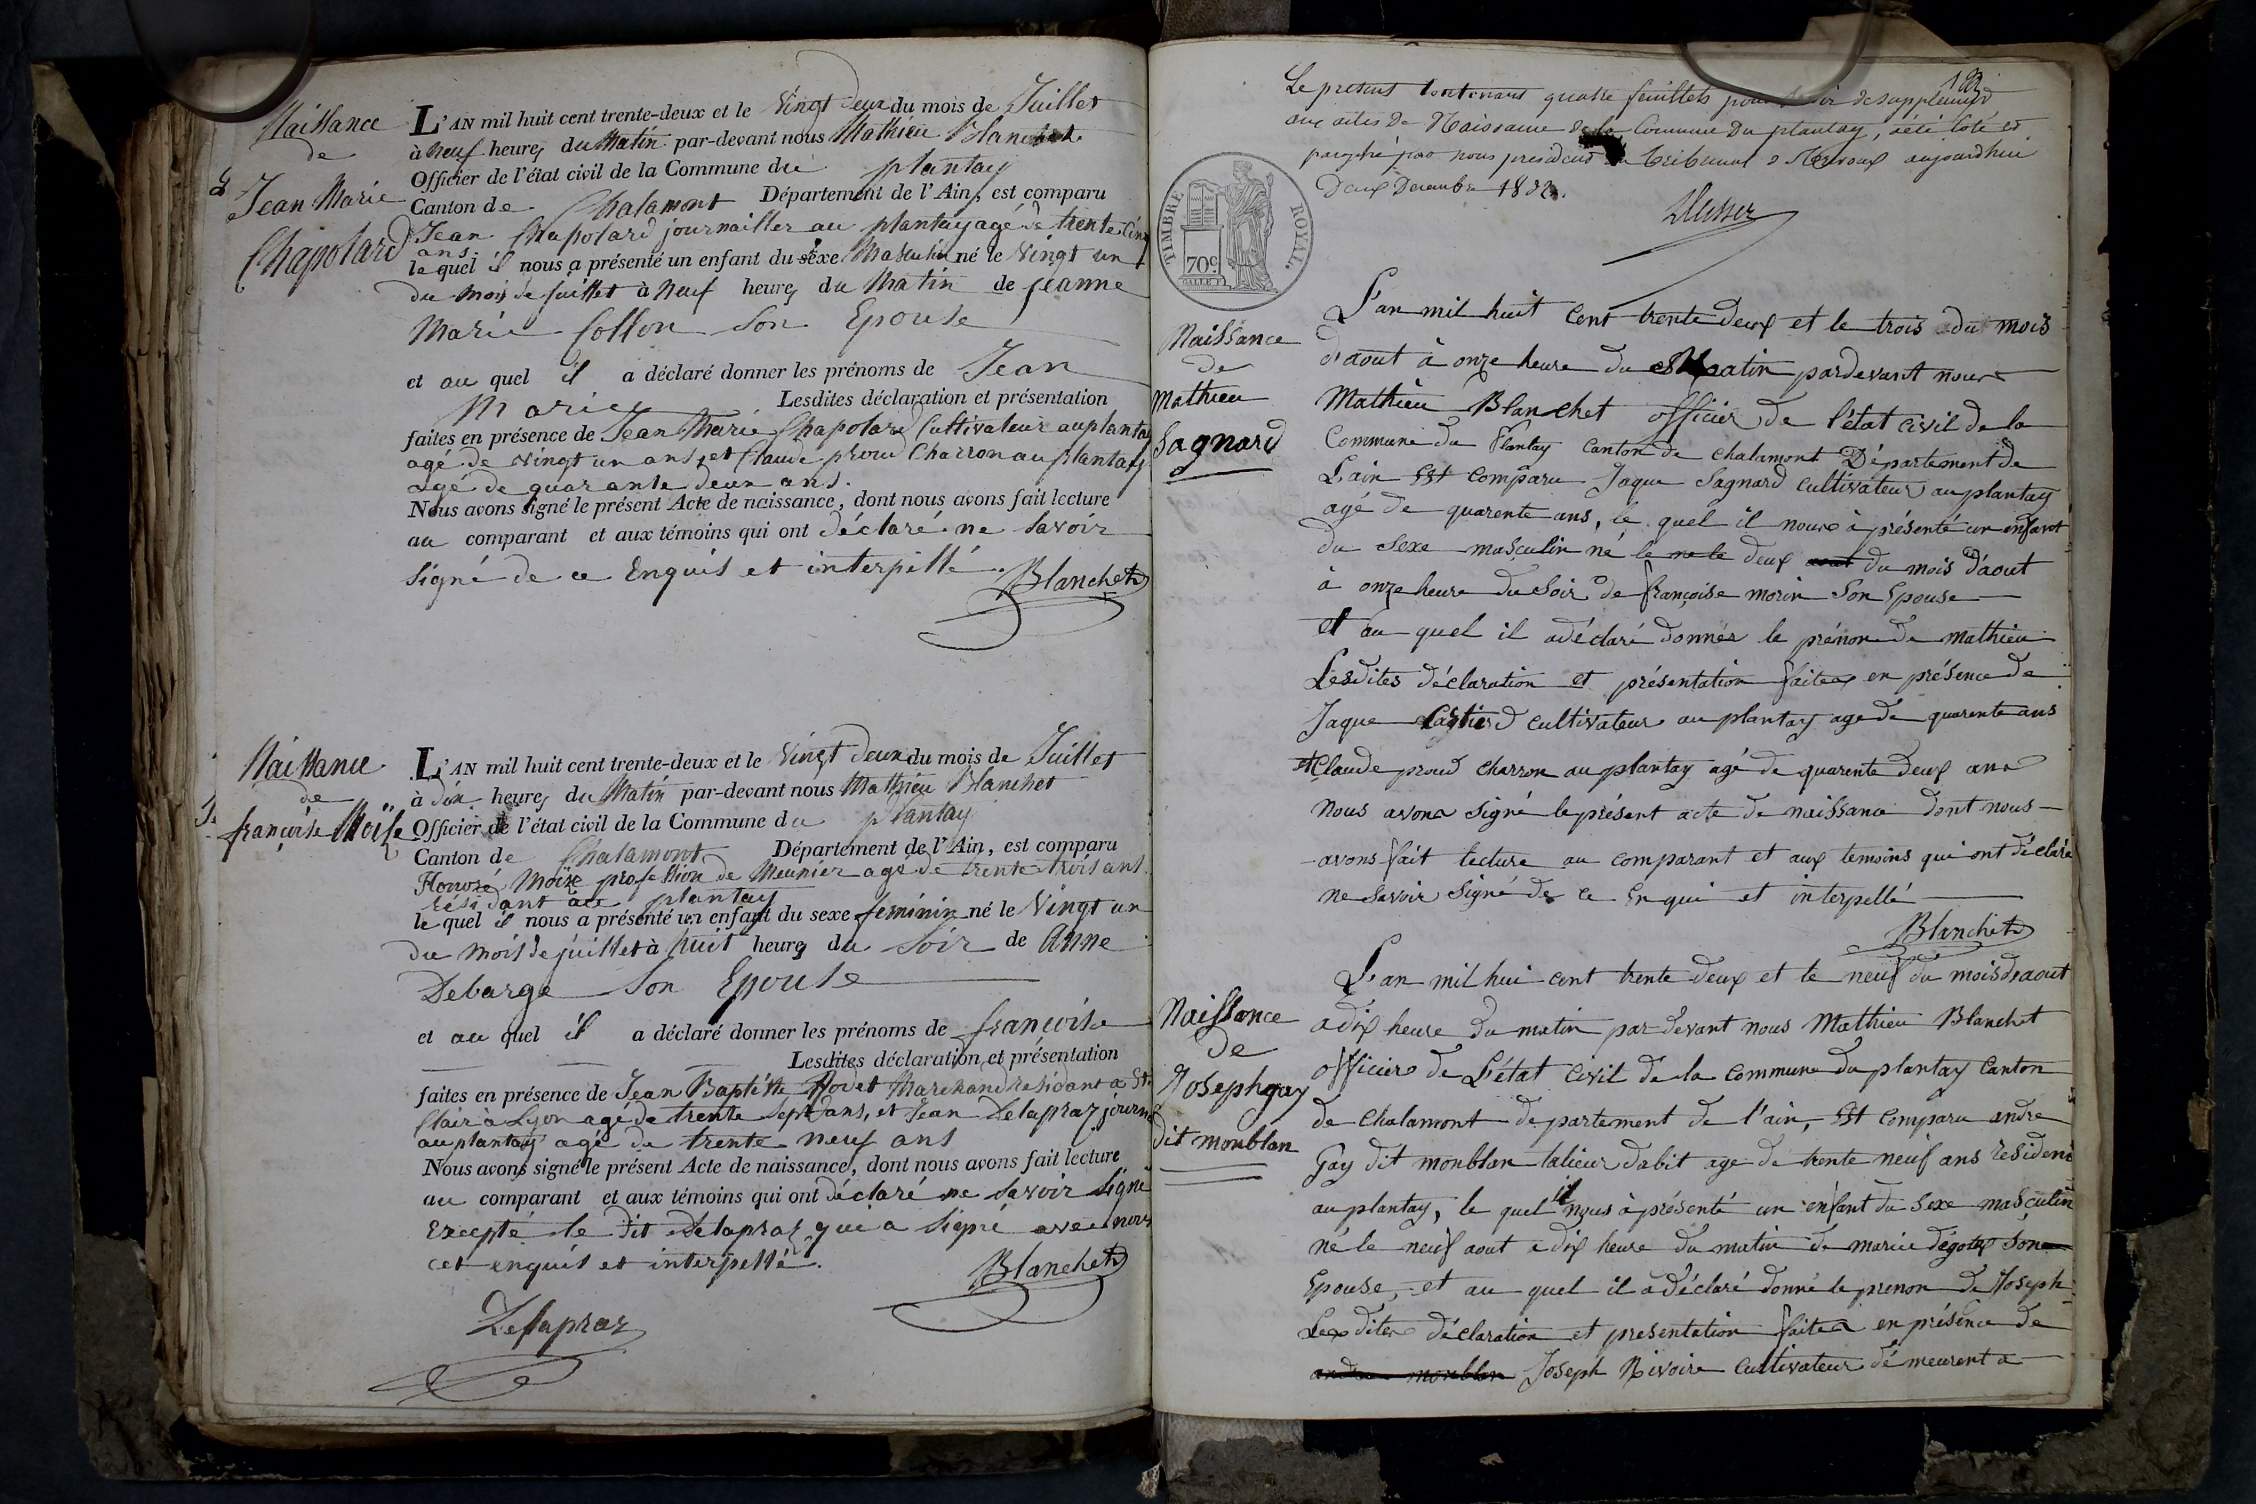 Naissance
de
Jean Marie
Chapolard
L'AN mil huit cent trente-deux et le Vingt Deux du mois de Juillet
à Neuf heures du Matin par-devant nous Mathieu Blanchet
Officier de l'état civil de la Commune du plantay
Canton de Chalamont Département de l'Ain, est comparu
Jean Chapolard journailler au plantay agé de trente Cinq
ans
le quel il nous a présenté un enfant du sexe Masculin né le Vingt un
du mois de juillet à Neuf heures du Matin de jeanne
Marie Collon Son Epouse
et au quel il a déclaré donner les prénoms de Jean
Marie Lesdites déclaration et présentation
faites en présence de Jean Marie Chapolard Cultivateur au plantay
agé de vingt un ans, et Claude proud Charron au plantay
agé de quarante deux ans.
Nous avons signé le présent Acte de naissance, dont nous avons fait lecture
au comparant et aux témoins qui ont déclaré ne Savoir
Signé de ce Enquis et interpillé.
Blanchet
Naissance
de
françoise Moïse
L'AN mil huit cent trente-deux et le Vingt Deux du mois de Juillet
à dix heures du Matin par-devant nous Mathieu Blanchet
Officier de l'état civil de la Commune du plantay
Canton de Chalamont Département de l'Ain, est comparu
Honoré Moïze profession de Meunier agé de trente trois ans
résidant au plantay
le quel il nous a présenté un enfant du sexe feminin né le Vingt un
du Mois de juillet à huit heures du Soir de Anne
Debarge Son Epouse
et au quel il a déclaré donner les prénoms de françoise
Lesdites déclaration et présentation
faites en présence de Jean Baptiste Marchand résidant a St.
Clair à Lyon agé de trente Sept ans, et Jean Delapraz journ
au plantay agé de trente neuf ans
Nous avons signé le présent Acte de naissance, dont nous avons fait lecture
au comparant et aux témoins qui ont déclaré ne Savoir Signé
Excepté le dit Delapraz que a Signé avec nous
cet enquis et interpellé.
Blanchet
Delapraz
Le présent Contenant quatre feuillets pour de supplément
aux actes de Naissance de la Commune du plantay, a été coté et
paraphé par nous président tribunal de Trévoux aujourdhui
Deux Decembre 183
TIMBRE ROYAL
70c
Naissance
de
Mathieu
Sagnard
L'an mil huit cent trente deux et le trois du mois
d'aout à onze heure du Matin pardevant nous
Mathieu Blanchet officier de l'état civil de la
Commune du Plantay Canton de chalamont Département de
L'ain Est comparu Jaque Sagnard cultivateur au plantay
agé de quarente ans, le quel il nous à présenté un enfant
du sexe masculin né le ne le deux aout du mois d'aout
à onze heure du Soir de françoise morin Son Epouse
et au quel il adéclaré donner le prénom de mathieu
Lesdites déclaration et présentation faites en présence de
Jaque cultivateur au plantay age de quarente ans
et Claude proud charron au plantay agé de quarente deux ans
Nous avons signé le présent acte de naissance dont nous
avons fait lecture au comparant et aux temoins qui ont déclaré
ne Savoir Signé de ce Enqui et interpellé
Blanchet
Naissance
de
Joseph gay
dit monblan
L'an mil hui cent trente deux et le neuf du mois d'aout
a dix heure du matin par devant nous Mathieu Blanchet
officier de L'état civil de la commune du plantay Canton
de chalamont departement de l'ain, Est comparu andre
Gay dit monblan talieur dabit age de trente neuf ans resident
au plantay, le quel il nous à présenté un enfant du Sexe masculin
né le neuf aout a dix heure du matin de marie dégotex son
Epouse, et au quel il a déclaré donné le prenon de Joseph
Les dites déclaration et presentation faites en présence de
andre monblan Joseph Rivoire Cultivateur démeurent a